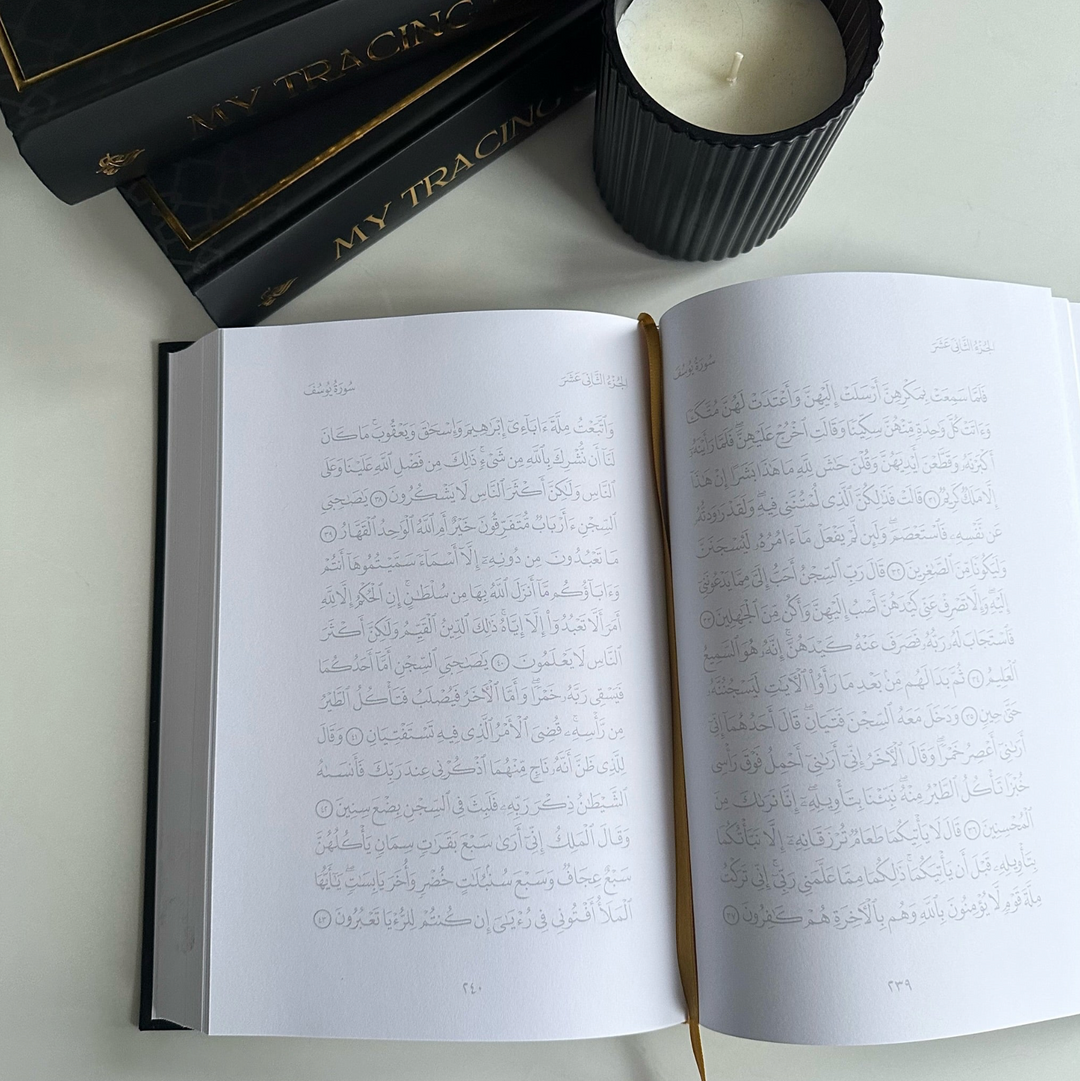 MY TRACING
MY TRACING
الجُزْءُ الثَّانِي عَشَرَ
سُورَةُ يُوسُفَ
فَلَمَّا سَمِعَتْ بِمَكْرِهِنَّ أَرْسَلَتْ إِلَيْهِنَّ وَأَعْتَدَتْ لَهُنَّ مُتَّكَـًٔا
وَءَاتَتْ كُلَّ وَٰحِدَةٍ مِّنْهُنَّ سِكِّينًا وَقَالَتِ ٱخْرُجْ عَلَيْهِنَّ ۖ فَلَمَّا رَأَيْنَهُۥٓ
أَكْبَرْنَهُۥ وَقَطَّعْنَ أَيْدِيَهُنَّ وَقُلْنَ حَٰشَ لِلَّهِ مَا هَٰذَا بَشَرًا إِنْ هَٰذَآ
إِلَّا مَلَكٌ كَرِيمٌ ٣١ قَالَتْ فَذَٰلِكُنَّ ٱلَّذِى لُمْتُنَّنِى فِيهِ ۖ وَلَقَدْ رَٰوَدتُّهُۥ
عَن نَّفْسِهِۦ فَٱسْتَعْصَمَ ۖ وَلَئِن لَّمْ يَفْعَلْ مَآ ءَامُرُهُۥ لَيُسْجَنَنَّ
وَلَيَكُونًا مِّنَ ٱلصَّٰغِرِينَ ٣٢ قَالَ رَبِّ ٱلسِّجْنُ أَحَبُّ إِلَىَّ مِمَّا يَدْعُونَنِىٓ
إِلَيْهِ ۖ وَإِلَّا تَصْرِفْ عَنِّى كَيْدَهُنَّ أَصْبُ إِلَيْهِنَّ وَأَكُن مِّنَ ٱلْجَٰهِلِينَ ٣٣
فَٱسْتَجَابَ لَهُۥ رَبُّهُۥ فَصَرَفَ عَنْهُ كَيْدَهُنَّ ۚ إِنَّهُۥ هُوَ ٱلسَّمِيعُ
ٱلْعَلِيمُ ٣٤ ثُمَّ بَدَا لَهُم مِّنۢ بَعْدِ مَا رَأَوُا۟ ٱلْءَايَٰتِ لَيَسْجُنُنَّهُۥ
حَتَّىٰ حِينٍ ٣٥ وَدَخَلَ مَعَهُ ٱلسِّجْنَ فَتَيَانِ ۖ قَالَ أَحَدُهُمَآ إِنِّىٓ
أَرَىٰنِىٓ أَعْصِرُ خَمْرًا ۖ وَقَالَ ٱلْءَاخَرُ إِنِّىٓ أَرَىٰنِىٓ أَحْمِلُ فَوْقَ رَأْسِى
خُبْزًا تَأْكُلُ ٱلطَّيْرُ مِنْهُ ۖ نَبِّئْنَا بِتَأْوِيلِهِۦٓ ۖ إِنَّا نَرَىٰكَ مِنَ
ٱلْمُحْسِنِينَ ٣٦ قَالَ لَا يَأْتِيكُمَا طَعَامٌ تُرْزَقَانِهِۦٓ إِلَّا نَبَّأْتُكُمَا
بِتَأْوِيلِهِۦ قَبْلَ أَن يَأْتِيَكُمَا ۚ ذَٰلِكُمَا مِمَّا عَلَّمَنِى رَبِّىٓ ۚ إِنِّى تَرَكْتُ
مِلَّةَ قَوْمٍ لَّا يُؤْمِنُونَ بِٱللَّهِ وَهُم بِٱلْءَاخِرَةِ هُمْ كَٰفِرُونَ ٣٧
٢٣٩
الجُزْءُ الثَّانِي عَشَرَ
سُورَةُ يُوسُفَ
وَٱتَّبَعْتُ مِلَّةَ ءَابَآءِىٓ إِبْرَٰهِيمَ وَإِسْحَٰقَ وَيَعْقُوبَ ۚ مَا كَانَ
لَنَآ أَن نُّشْرِكَ بِٱللَّهِ مِن شَىْءٍ ۚ ذَٰلِكَ مِن فَضْلِ ٱللَّهِ عَلَيْنَا وَعَلَى
ٱلنَّاسِ وَلَٰكِنَّ أَكْثَرَ ٱلنَّاسِ لَا يَشْكُرُونَ ٣٨ يَٰصَىٰحِبَىِ
ٱلسِّجْنِ ءَأَرْبَابٌ مُّتَفَرِّقُونَ خَيْرٌ أَمِ ٱللَّهُ ٱلْوَٰحِدُ ٱلْقَهَّارُ ٣٩
مَا تَعْبُدُونَ مِن دُونِهِۦٓ إِلَّآ أَسْمَآءً سَمَّيْتُمُوهَآ أَنتُمْ
وَءَابَآؤُكُم مَّآ أَنزَلَ ٱللَّهُ بِهَا مِن سُلْطَٰنٍ ۚ إِنِ ٱلْحُكْمُ إِلَّا لِلَّهِ ۚ
أَمَرَ أَلَّا تَعْبُدُوٓا۟ إِلَّآ إِيَّاهُ ۚ ذَٰلِكَ ٱلدِّينُ ٱلْقَيِّمُ وَلَٰكِنَّ أَكْثَرَ
ٱلنَّاسِ لَا يَعْلَمُونَ ٤٠ يَٰصَىٰحِبَىِ ٱلسِّجْنِ أَمَّآ أَحَدُكُمَا
فَيَسْقِى رَبَّهُۥ خَمْرًا ۖ وَأَمَّا ٱلْءَاخَرُ فَيُصْلَبُ فَتَأْكُلُ ٱلطَّيْرُ
مِن رَّأْسِهِۦ ۚ قُضِىَ ٱلْأَمْرُ ٱلَّذِى فِيهِ تَسْتَفْتِيَانِ ٤١ وَقَالَ
لِلَّذِى ظَنَّ أَنَّهُۥ نَاجٍ مِّنْهُمَا ٱذْكُرْنِى عِندَ رَبِّكَ فَأَنسَىٰهُ
ٱلشَّيْطَٰنُ ذِكْرَ رَبِّهِۦ فَلَبِثَ فِى ٱلسِّجْنِ بِضْعَ سِنِينَ ٤٢
وَقَالَ ٱلْمَلِكُ إِنِّىٓ أَرَىٰ سَبْعَ بَقَرَٰتٍ سِمَانٍ يَأْكُلُهُنَّ
سَبْعٌ عِجَافٌ وَسَبْعَ سُنۢبُلَٰتٍ خُضْرٍ وَأُخَرَ يَابِسَٰتٍ ۖ يَٰٓأَيُّهَا
ٱلْمَلَأُ أَفْتُونِى فِى رُءْيَٰىَ إِن كُنتُمْ لِلرُّءْيَا تَعْبُرُونَ ٤٣
٢٤٠